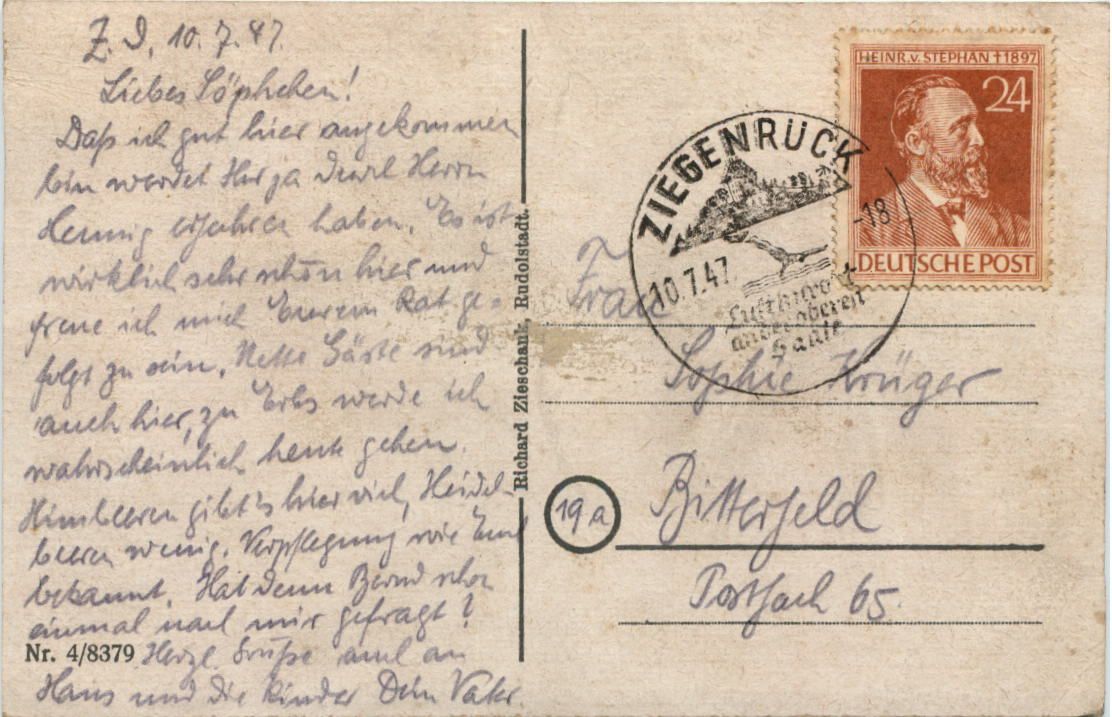 Z. D, 10. 7. 47.
Liebes Söphchen!
Daß ich gut hier angekommen
bin werdet Ihr ja durch Herrn
Hennig erfahren haben. Es ist
wirklich sehr schön hier und
freue ich mich Eurem Rat ge-
folgt zu sein. Nette Gäste sind
auch hier, zu Erbs werde ich
wahrscheinlich heute gehen.
Himbeeren gibt's hier viel, Heidel-
beeren wenig. Verpflegung wie Euch
bekannt. Hat denn Bernd schon
einmal nach mir gefragt?
Nr. 4/8379 Herzl. Grüße auch an
Hans und die Kinder Dein Vater.
Richard Zieschank, Rudolstadt.
HEINR. v. STEPHAN † 1897
24
DEUTSCHE POST
ZIEGENRÜCK
10.7.47 -18
Luftkurort
an der oberen
Saale
Frau
Sophie Krüger
19a
Bitterfeld
Postfach 65.